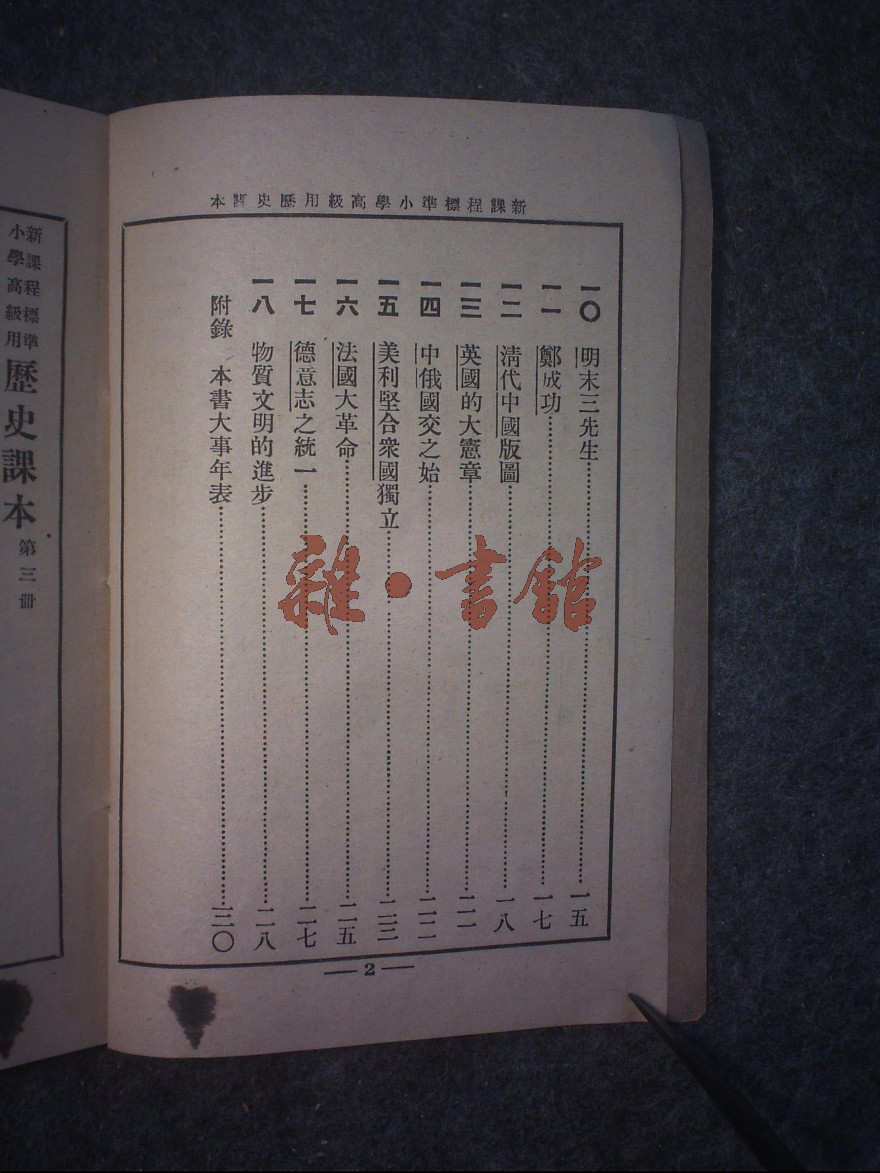 新課程標準小學高級用歷史課本
一〇 明末三先生……一五
一一 鄭成功……一七
一二 清代中國版圖……一八
一三 英國的大憲章……二一
一四 中俄國交之始……二二
一五 美利堅合衆國獨立……二三
一六 法國大革命……二五
一七 德意志之統一……二七
一八 物質文明的進步……二八
附錄 本書大事年表……三〇
— 2 —
新課程標準
小學高級用
歷史課本 第三冊
雜·書館